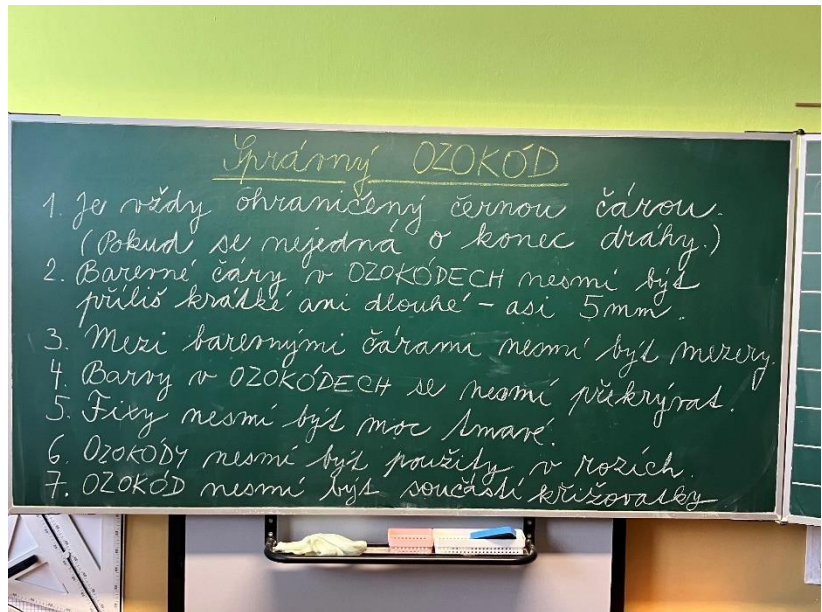 Správný OZOKÓD
1. Je vždy ohraničený černou čárou.
(Pokud se nejedná o konec dráhy.)
2. Barevné čáry v OZOKÓDECH nesmí být
příliš krátké ani dlouhé - asi 5mm.
3. Mezi barevnými čárami nesmí být mezery.
4. Barvy v OZOKÓDECH se nesmí překrývat.
5. Fixy nesmí být moc tmavé.
6. OZOKÓDY nesmí být použity v rozích.
7. OZOKÓD nesmí být součástí křižovatky